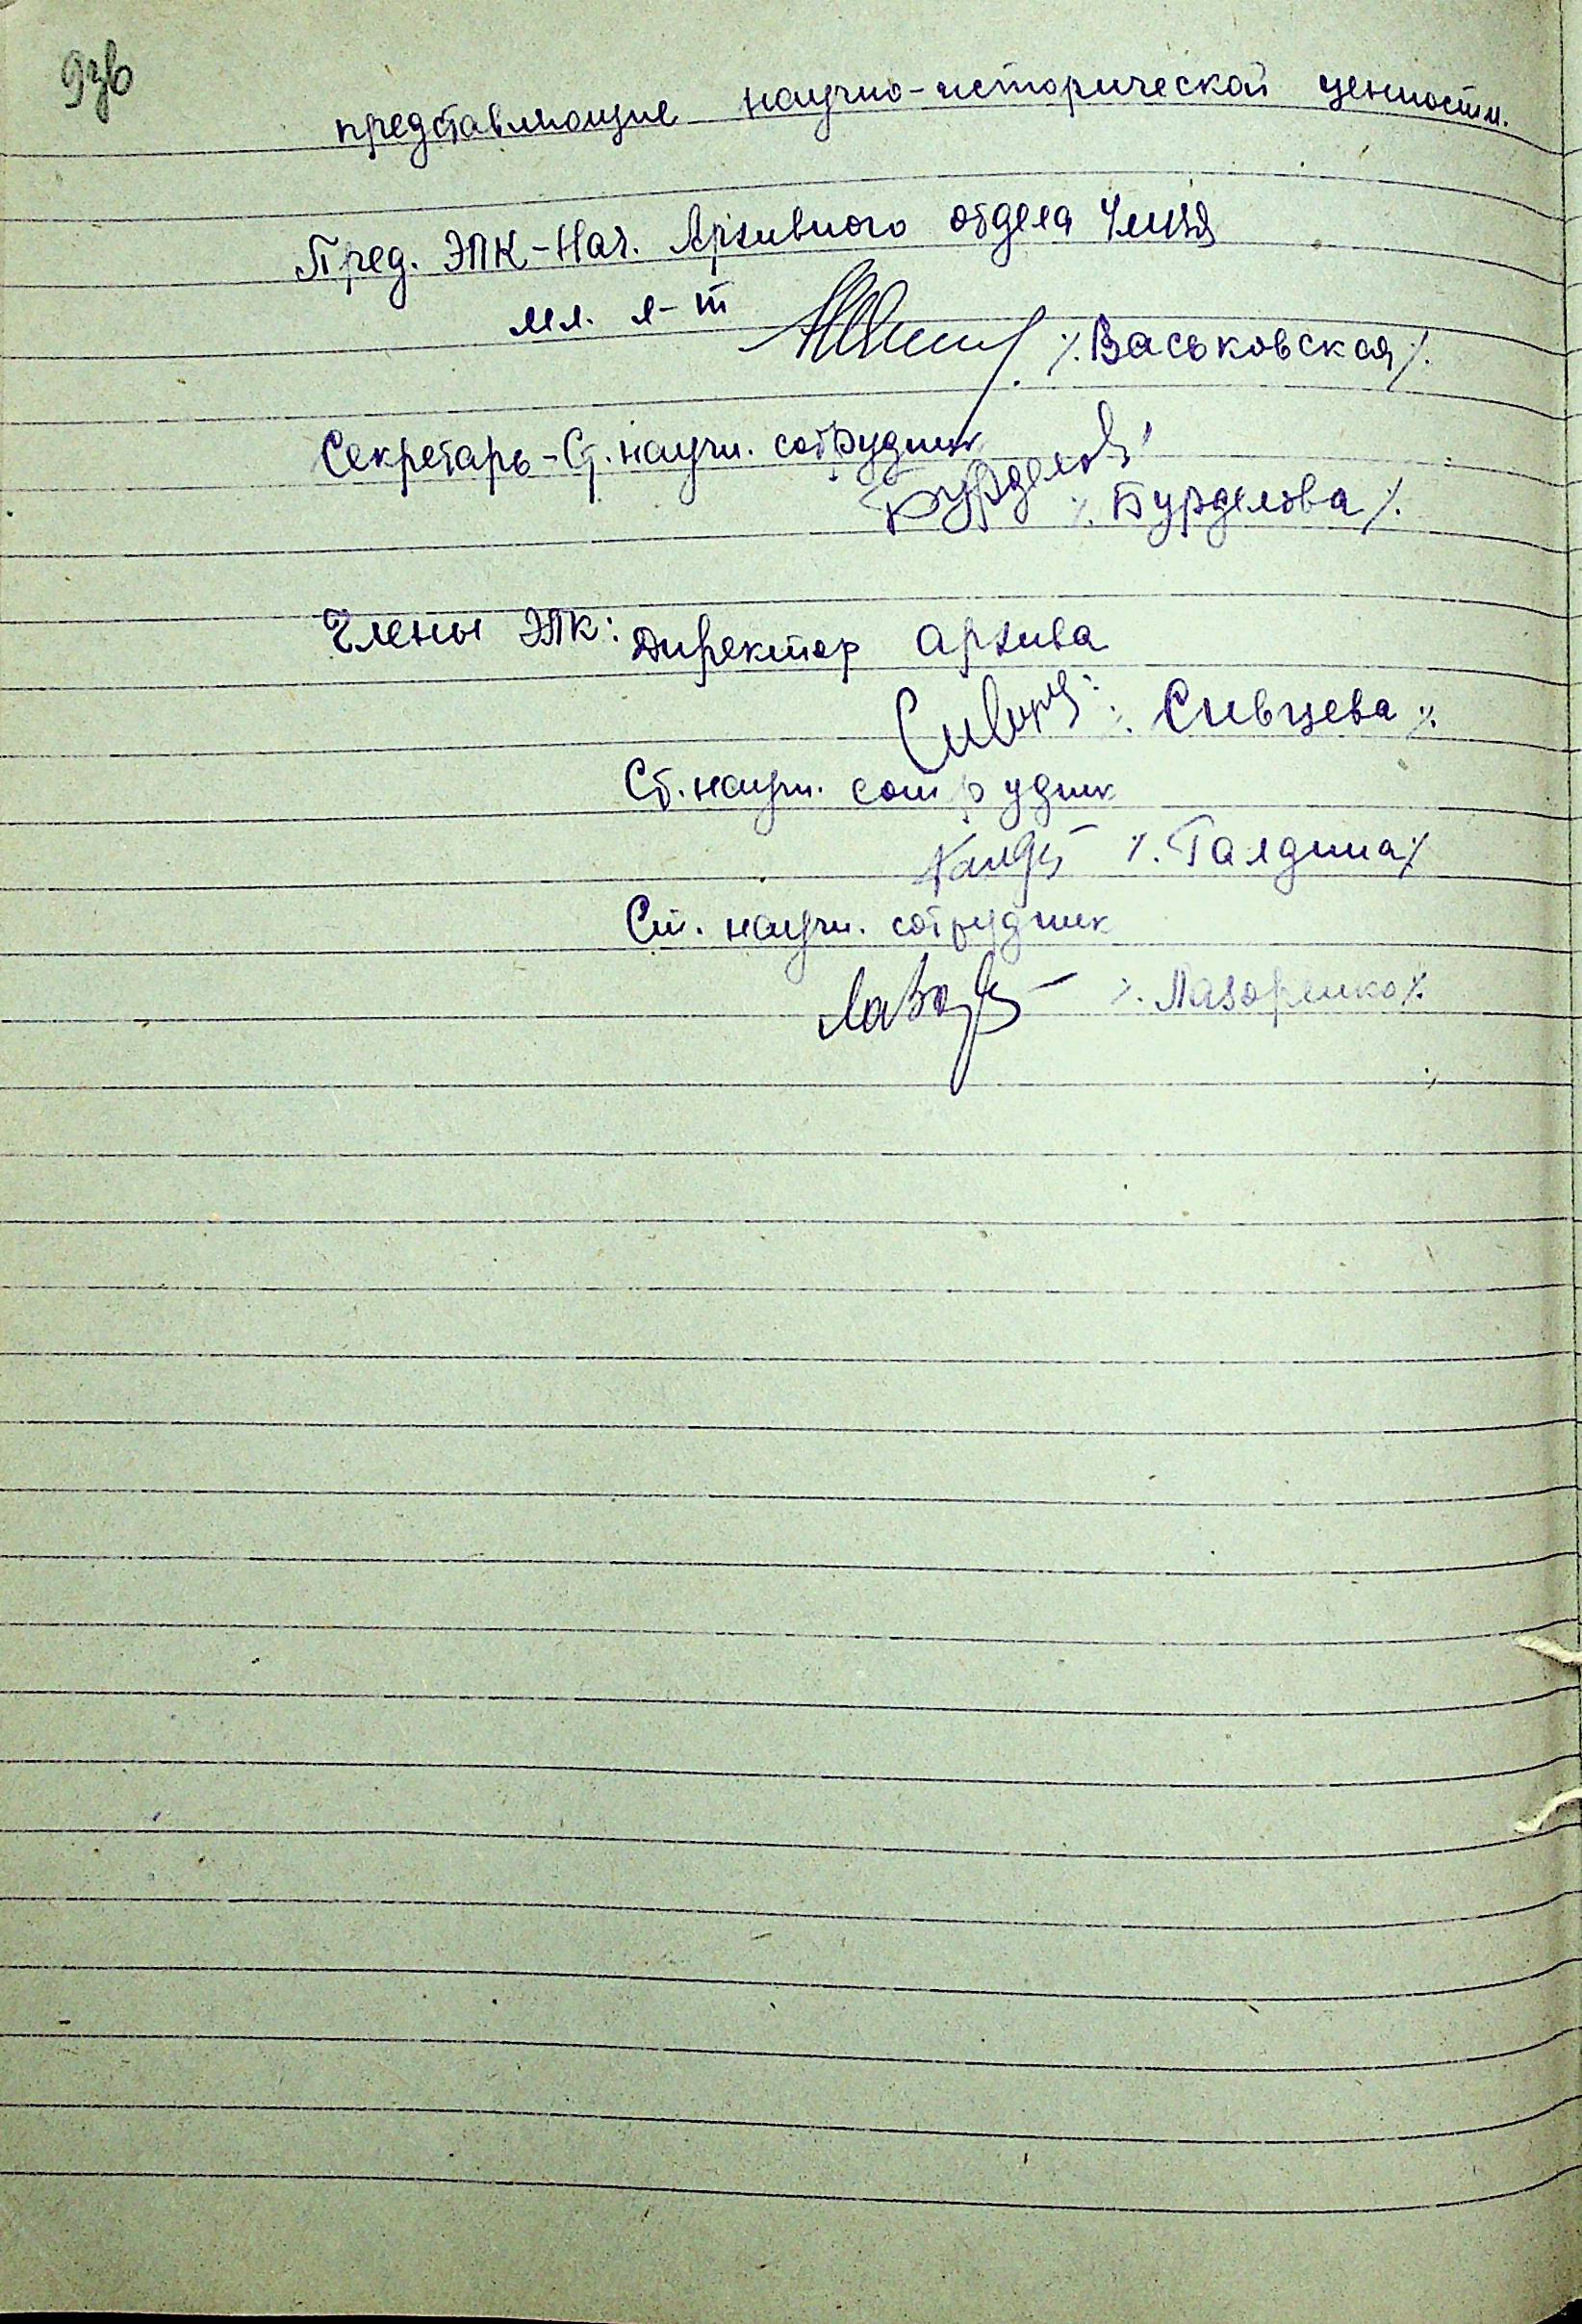 представляющие научно-исторической ценности.
Пред. ЭПК-Нач. Архивного отдела
мл. л-т /.Васьковская/.
Секретарь-Ст. научн. сотрудник
/.Бурделова/.
Члены ЭПК: Директор архива
/. Сивцева /.
Ст. научн. сотрудник
/. Галдина/.
Ст. научн. сотрудник
/. Лазоренко/.